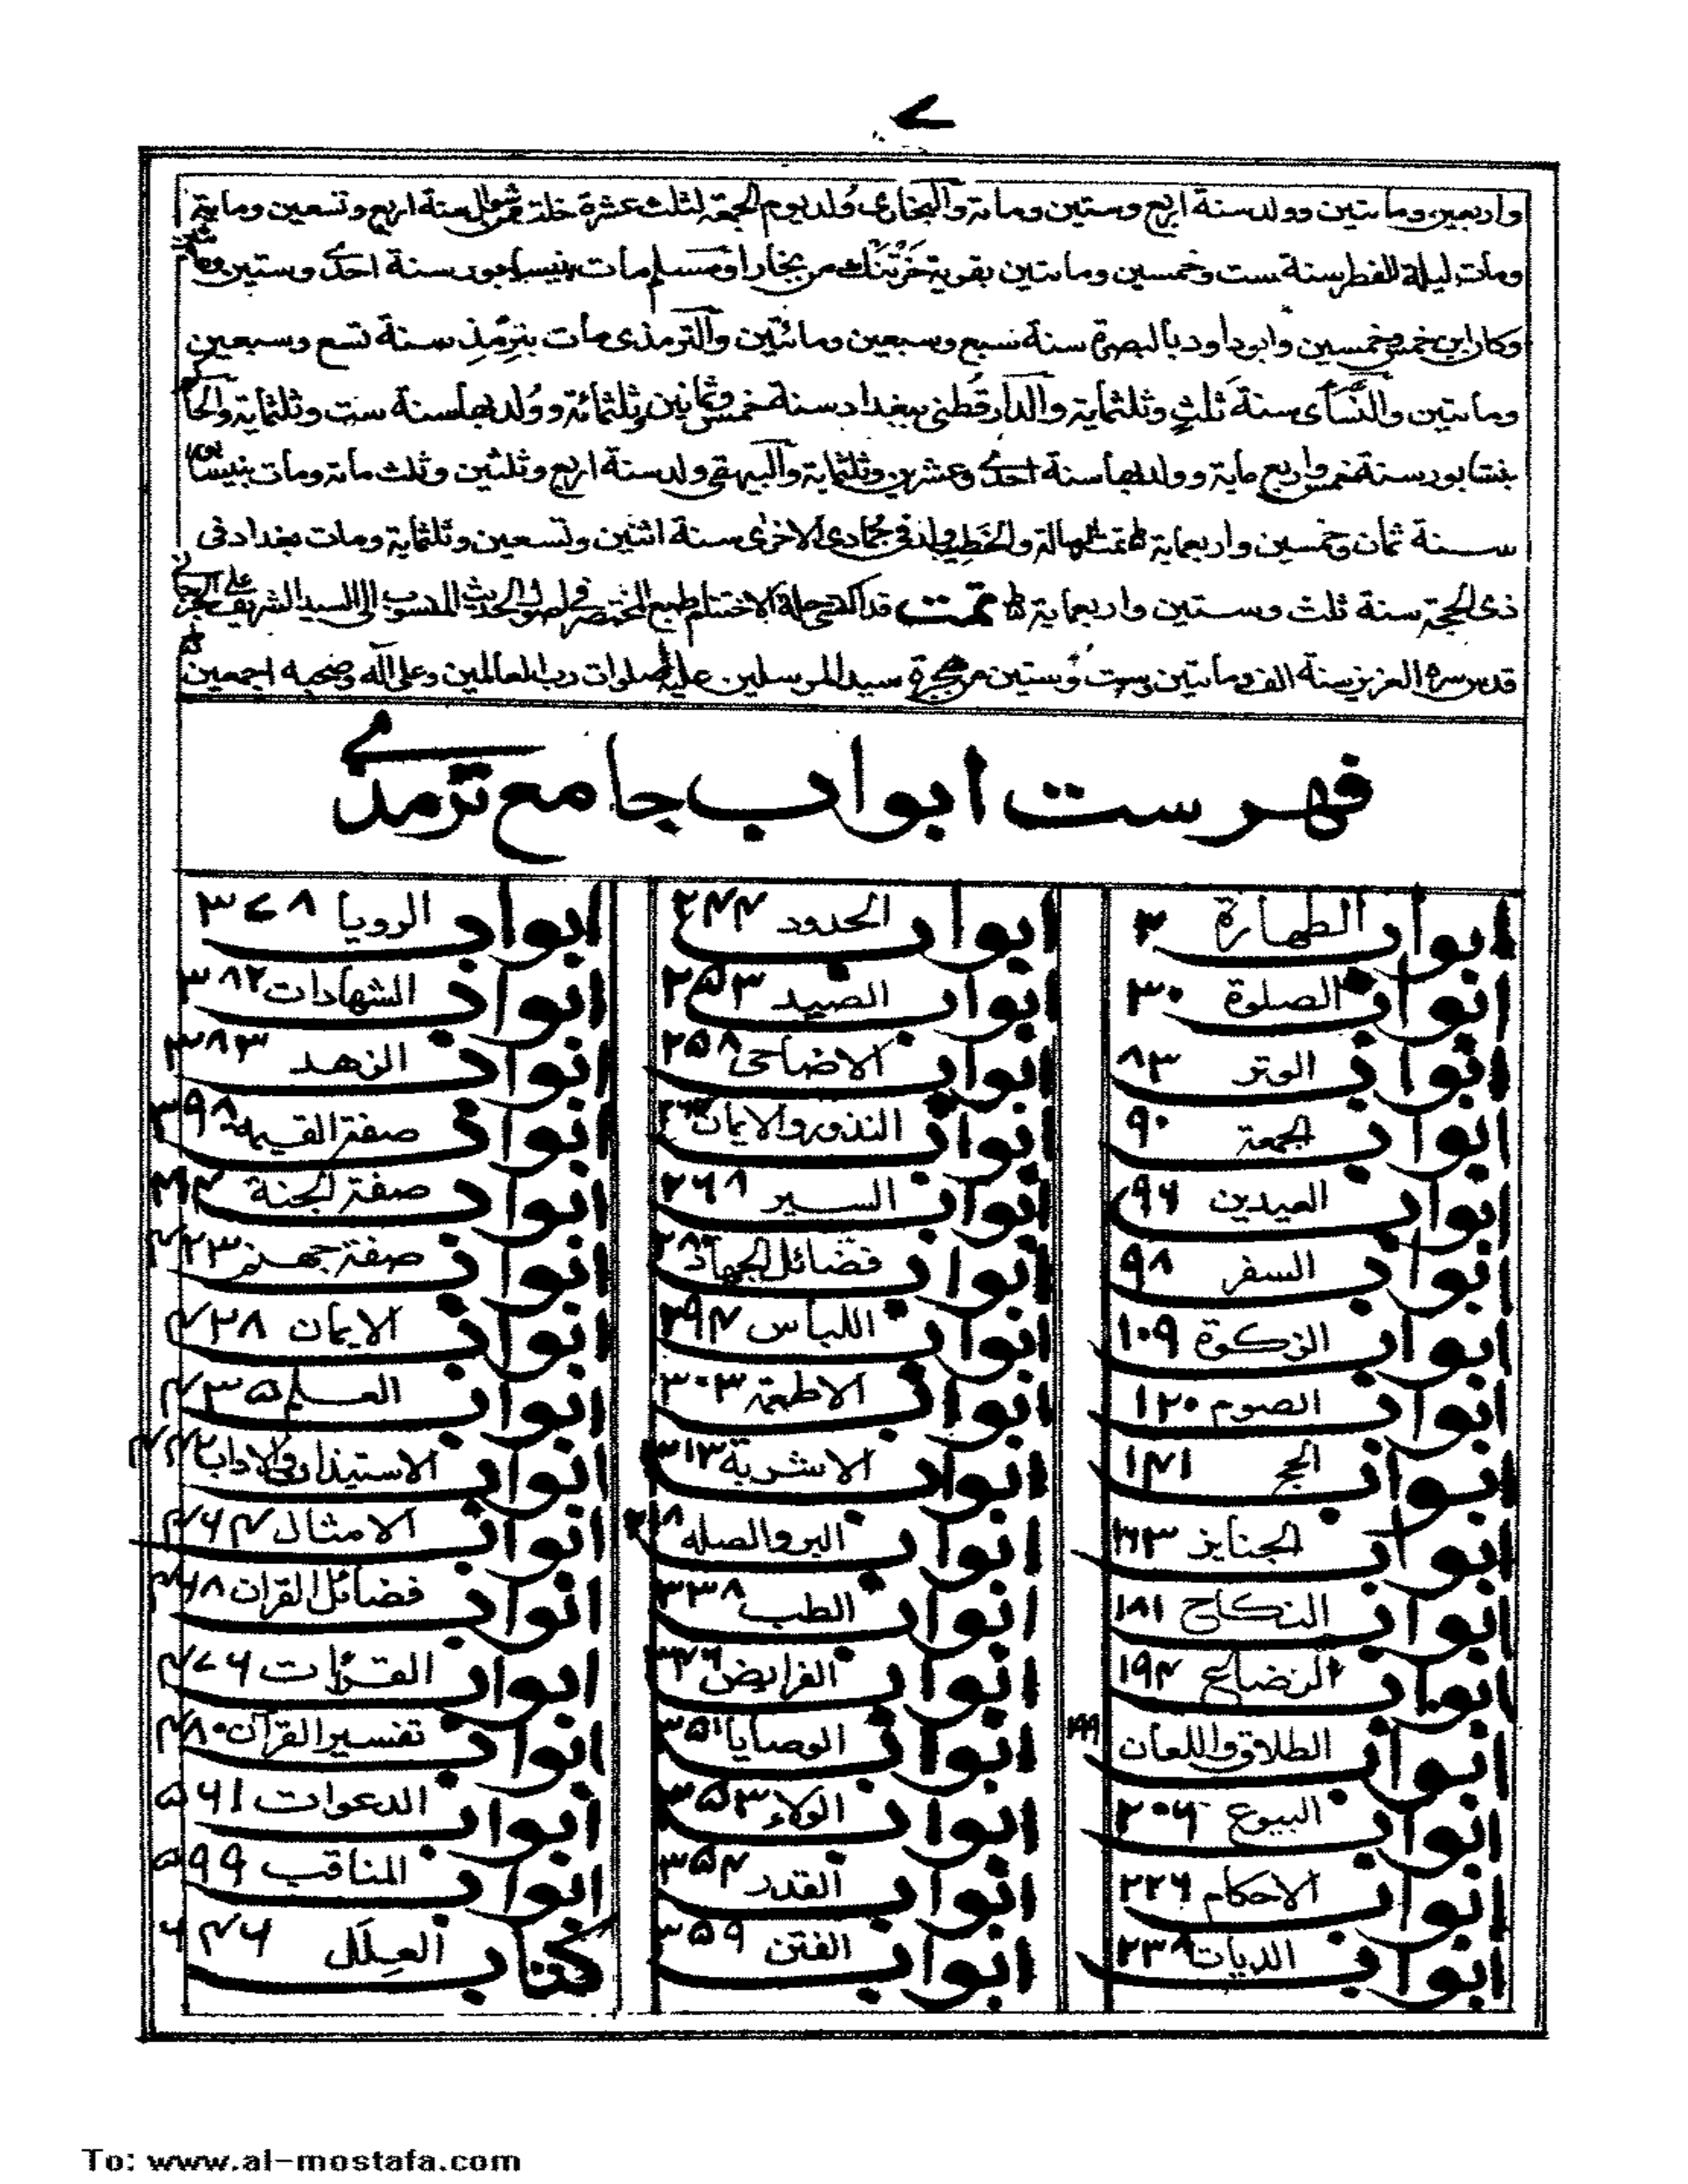 ۷
واربعين ومايتين وولد سنة اربع وستين ومائة والبخاري وُلد يوم الجمعة لثلث عشرة خلت من شوال سنة اربع وتسعين ومائة
ومات ليلة الفطر سنة ست وخمسين ومايتين بقرية خَرْتَنْك من بخارا ومسلم مات بنيسابور سنة احدى وستين ومائتين
وكان ابن خمس وخمسين وابوداود بالبصرة سنة سبع وسبعين ومائتين والترمذى مات بتِرْمِذِ سنة تسع وسبعين
ومايتين والنَّسائى سنة ثلثٍ وثلثماية والدارقُطنى ببغداد سنة خمس وثمانين وثلثمائة ووُلد بها سنة ست وثلثماية والحاكم
بنيسابور سنة خمس واربع ماية وولد بها سنة احدى وعشرين وثلثماية والبيهقى ولد سنة اربع وثلثين وثلث مائة ومات بنيسابور
سنة ثمان وخمسين واربعماية تمت الرسالة والخطيب ولد فى جُمادى الاخرى سنة اثنين وتسعين وثلثماية ومات ببغداد فى
ذى الحجة سنة ثلث وستين واربعماية تمت قد اكتسى حلة الاختتام طبع المختصر فى اصول الحديث المنسوب الى السيد الشريف على الجرجانى
قدس سره العزيز سنة الف ومايتين وست وستين من هجرة سيد المرسلين عليه صلوات رب العالمين وعلى آله وصحبه اجمعين
فهرست ابواب جامع ترمذى
ابواب الطهارة ۳
ابواب الصلوة ۳۰
ابواب الوتر ۸۳
ابواب الجمعة ۹۰
ابواب العيدين ۹۶
ابواب السفر ۹۸
ابواب الزكوة ۱۰۹
ابواب الصوم ۱۲۰
ابواب الحج ۱۴۱
ابواب الجنايز ۱۶۳
ابواب النكاح ۱۸۱
ابواب الرضاع ۱۹۴
ابواب الطلاق واللعان ۱۹۹
ابواب البيوع ۲۰۶
ابواب الاحكام ۲۲۶
ابواب الديات ۲۳۸
ابواب الحدود ۲۴۴
ابواب الصيد ۲۵۳
ابواب الاضاحى ۲۵۸
ابواب النذور والايمان
ابواب السير ۲۶۸
ابواب فضائل الجهاد ۲۸۰
ابواب اللباس ۲۹۴
ابواب الاطعمة ۳۰۳
ابواب الاشربة ۳۱۳
ابواب البر والصله ۳۱۸
ابواب الطب ۳۳۸
ابواب الفرايض ۳۴۶
ابواب الوصايا ۳۵۱
ابواب الولاء ۳۵۳
ابواب القدر ۳۵۴
ابواب الفتن ۳۵۹
ابواب الرويا ۳۷۸
ابواب الشهادات ۳۸۲
ابواب الزهد ۳۸۳
ابواب صفة القيمة ۳۹۸
ابواب صفة الجنة
ابواب صفة جهنم ۴۲۳
ابواب الايمان ۴۲۸
ابواب العلم ۴۳۵
ابواب الاستيذان والاداب ۴۴۲
ابواب الامثال ۴۶۴
ابواب فضائل القران ۴۶۸
ابواب القرات ۴۷۶
ابواب تفسير القرآن ۴۸۰
ابواب الدعوات ۵۶۱
ابواب المناقب ۵۹۹
كتاب العِلَل ۶۴۶
To: www.al-mostafa.com